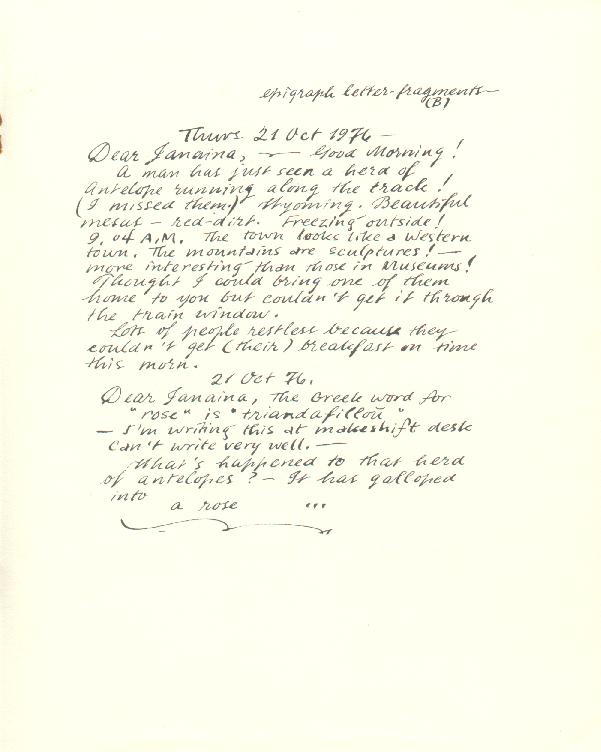 epigraph letter-fragments—
(B)
Thurs. 21 Oct 1976 —
Dear Janaina, — — Good Morning!
A man has just seen a herd of
Antelope running along the track!
(I missed them.) Wyoming. Beautiful
mesas — red-dirt. Freezing outside!
9.04 A.M. The town looks like a Western
town. The mountains are sculptures! —
more interesting than those in Museums!
Thought I could bring one of them
home to you but couldn't get it through
the train window.
Lots of people restless because they
couldn't get (their) breakfast on time
this morn.
21 Oct 76.
Dear Janaina, The Greek word for
"rose" is "triandafillou"
— I'm writing this at makeshift desk
Can't write very well. —
What's happened to that herd
of antelopes? — It has galloped
into
a rose ...